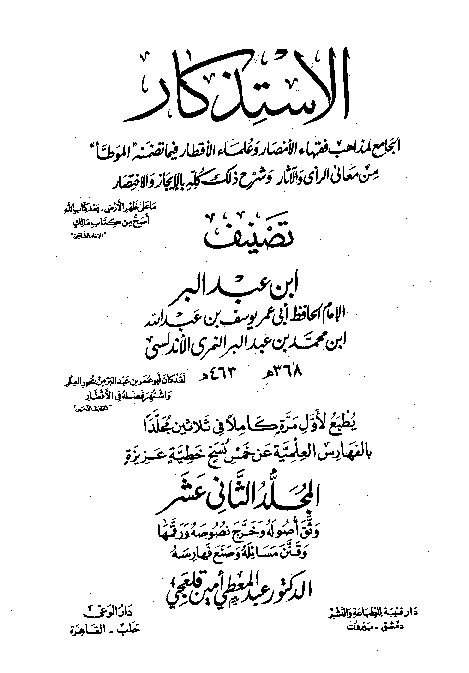 الاستذكار
الجامع لمذاهب فقهاء الأمصار وعلماء الأقطار فيما تضمنه "الموطأ"
من معاني الرأي والآثار وشرح ذلك كله بالإيجاز والاختصار
ما على ظهر الأرض - بعد كتاب الله
أصح من كتاب مالك
تصنيف
ابن عبد البر
الإمام الحافظ أبي عمر يوسف بن عبد الله
ابن محمد بن عبد البر النمري الأندلسي
٣٦٨هـ ٤٦٣هـ
لقد كان أبو عمر بن عبد البر من بحور العلم
واشتهر فضله في الأقطار
يطبع لأول مرة كاملا في ثلاثين مجلدا
بالفهارس العلمية عن خمس نسخ خطية عزيزة
المجلد الثاني عشر
وثق أصوله وخرج نصوصه ورقمها
وقنن مسائله وصنع فهارسه
الدكتور عبد المعطي أمين قلعجي
دار قتيبة للطباعة والنشر
دمشق - بيروت
دار الوعي
حلب - القاهرة